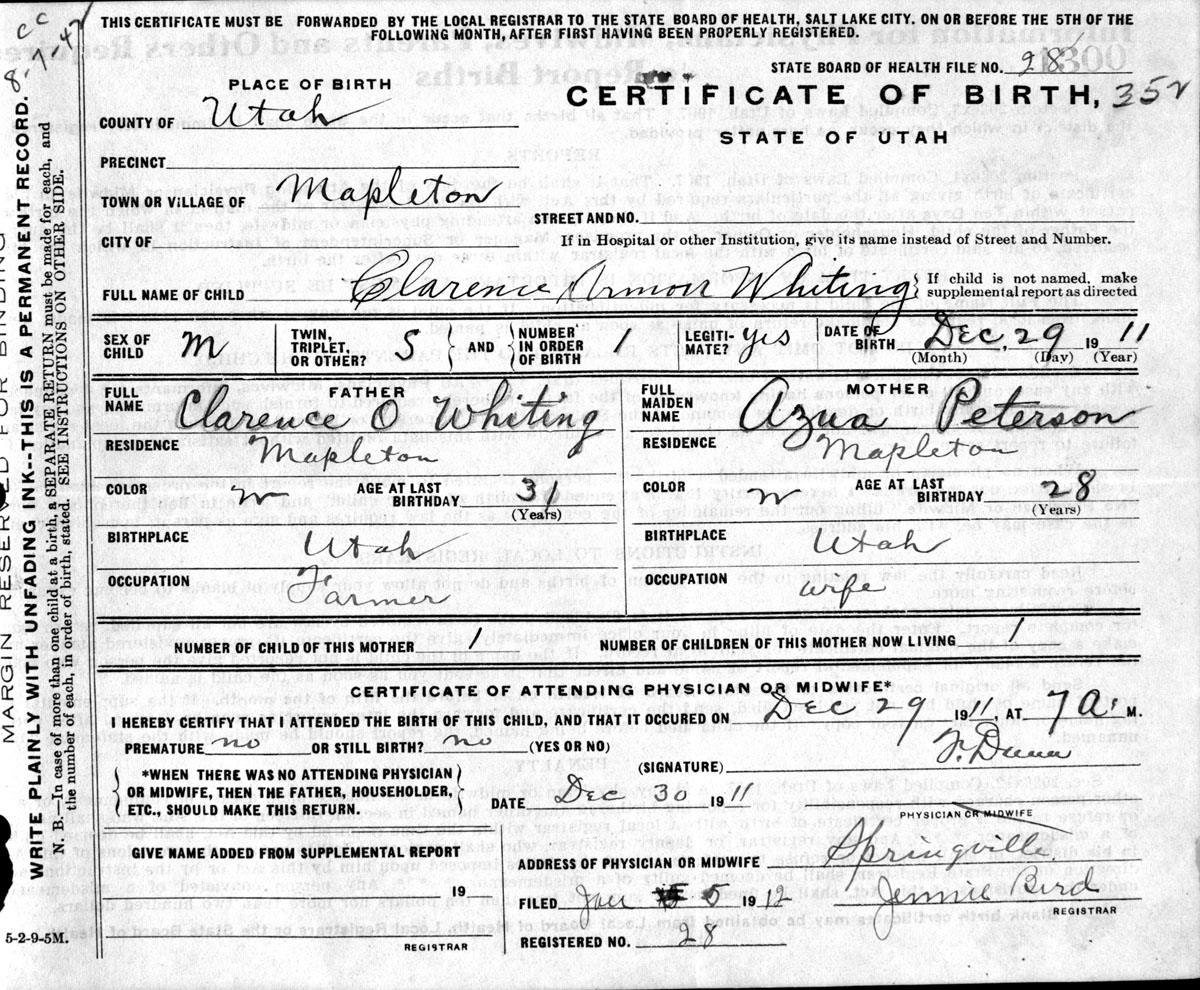 THIS CERTIFICATE MUST BE FORWARDED BY THE LOCAL REGISTRAR TO THE STATE BOARD OF HEALTH, SALT LAKE CITY. ON OR BEFORE THE 5TH OF THE
FOLLOWING MONTH, AFTER FIRST HAVING BEEN PROPERLY REGISTERED.
STATE BOARD OF HEALTH FILE NO. 28
PLACE OF BIRTH
CERTIFICATE OF BIRTH, 352
COUNTY OF Utah
STATE OF UTAH
PRECINCT
TOWN OR VILLAGE OF Mapleton
STREET AND NO.
CITY OF
If in Hospital or other Institution, give its name instead of Street and Number.
FULL NAME OF CHILD Clarence Armon Whiting
If child is not named, make
supplemental report as directed
SEX OF CHILD M
TWIN, TRIPLET, OR OTHER? S
AND
NUMBER IN ORDER OF BIRTH 1
LEGITI-MATE? yes
DATE OF BIRTH Dec, 29 1911
(Month) (Day) (Year)
FATHER
FULL NAME Clarence O Whiting
RESIDENCE Mapleton
COLOR W AGE AT LAST BIRTHDAY
(Years)
BIRTHPLACE Utah
OCCUPATION Farmer
MOTHER
FULL MAIDEN NAME Azua Peterson
RESIDENCE Mapleton
COLOR W AGE AT LAST BIRTHDAY 28
(Years)
BIRTHPLACE Utah
OCCUPATION
NUMBER OF CHILD OF THIS MOTHER 1
NUMBER OF CHILDREN OF THIS MOTHER NOW LIVING 1
CERTIFICATE OF ATTENDING PHYSICIAN OR MIDWIFE*
I HEREBY CERTIFY THAT I ATTENDED THE BIRTH OF THIS CHILD, AND THAT IT OCCURED ON Dec 29 1911, AT 7 A. M.
PREMATURE no OR STILL BIRTH? no (YES OR NO)
(SIGNATURE) F. Dunn
*WHEN THERE WAS NO ATTENDING PHYSICIAN
OR MIDWIFE, THEN THE FATHER, HOUSEHOLDER,
ETC., SHOULD MAKE THIS RETURN.
DATE Dec 30 1911
PHYSICIAN OR MIDWIFE
GIVEN NAME ADDED FROM SUPPLEMENTAL REPORT
19
REGISTRAR
ADDRESS OF PHYSICIAN OR MIDWIFE Springville
FILED Jan 5 1912 Jennie Bird
REGISTRAR
REGISTERED NO. 28
5-2-9-5M.
MARGIN RESERVED FOR BINDING
WRITE PLAINLY WITH UNFADING INK--THIS IS A PERMANENT RECORD.
N. B.—In case of more than one child at a birth, a SEPARATE RETURN must be made for each, and
the number of each, in order of birth, stated. SEE INSTRUCTIONS ON OTHER SIDE.